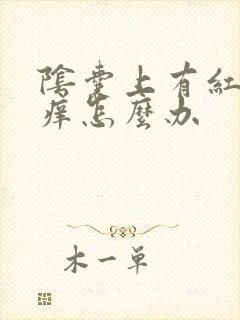 陰囊上有紅
痒怎麼办
木一单